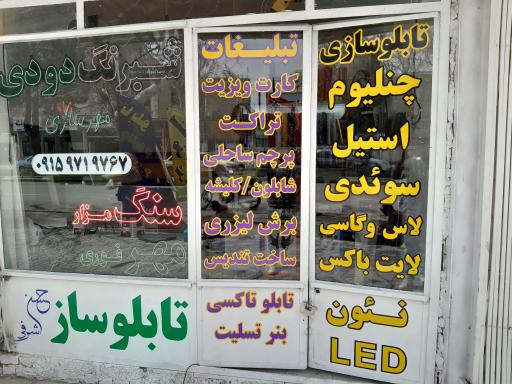 تابلوسازی
چنلیوم
استیل
سوئدی
لاس وگاسی
لایت باکس
نئون
LED
تبلیغات
کارت ویزیت
تراکت
پرچم ساحلی
شابلون/کلیشه
برش لیزری
ساخت تندیس
تابلو تاکسی
بنر تسلیت
شبرنگ دودی
مهرسازی
۰۹۱۵۹۷۱۹۷۶۷
سنگ مزار
مهر فوری
تابلوساز
حسن اشرفی